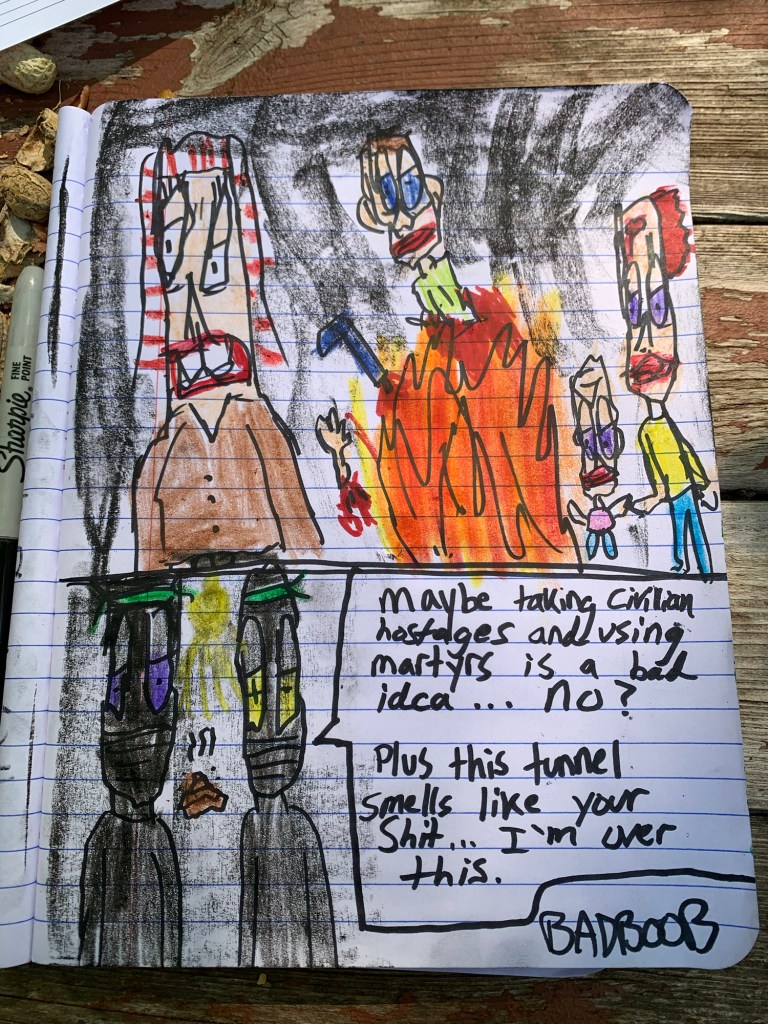 Sharpie
FINE POINT
Maybe taking Civilian
hostages and using
martyrs is a bad
idea ... NO?
Plus this tunnel
smells like your
Shit... I'm over
this.
BADBOOB